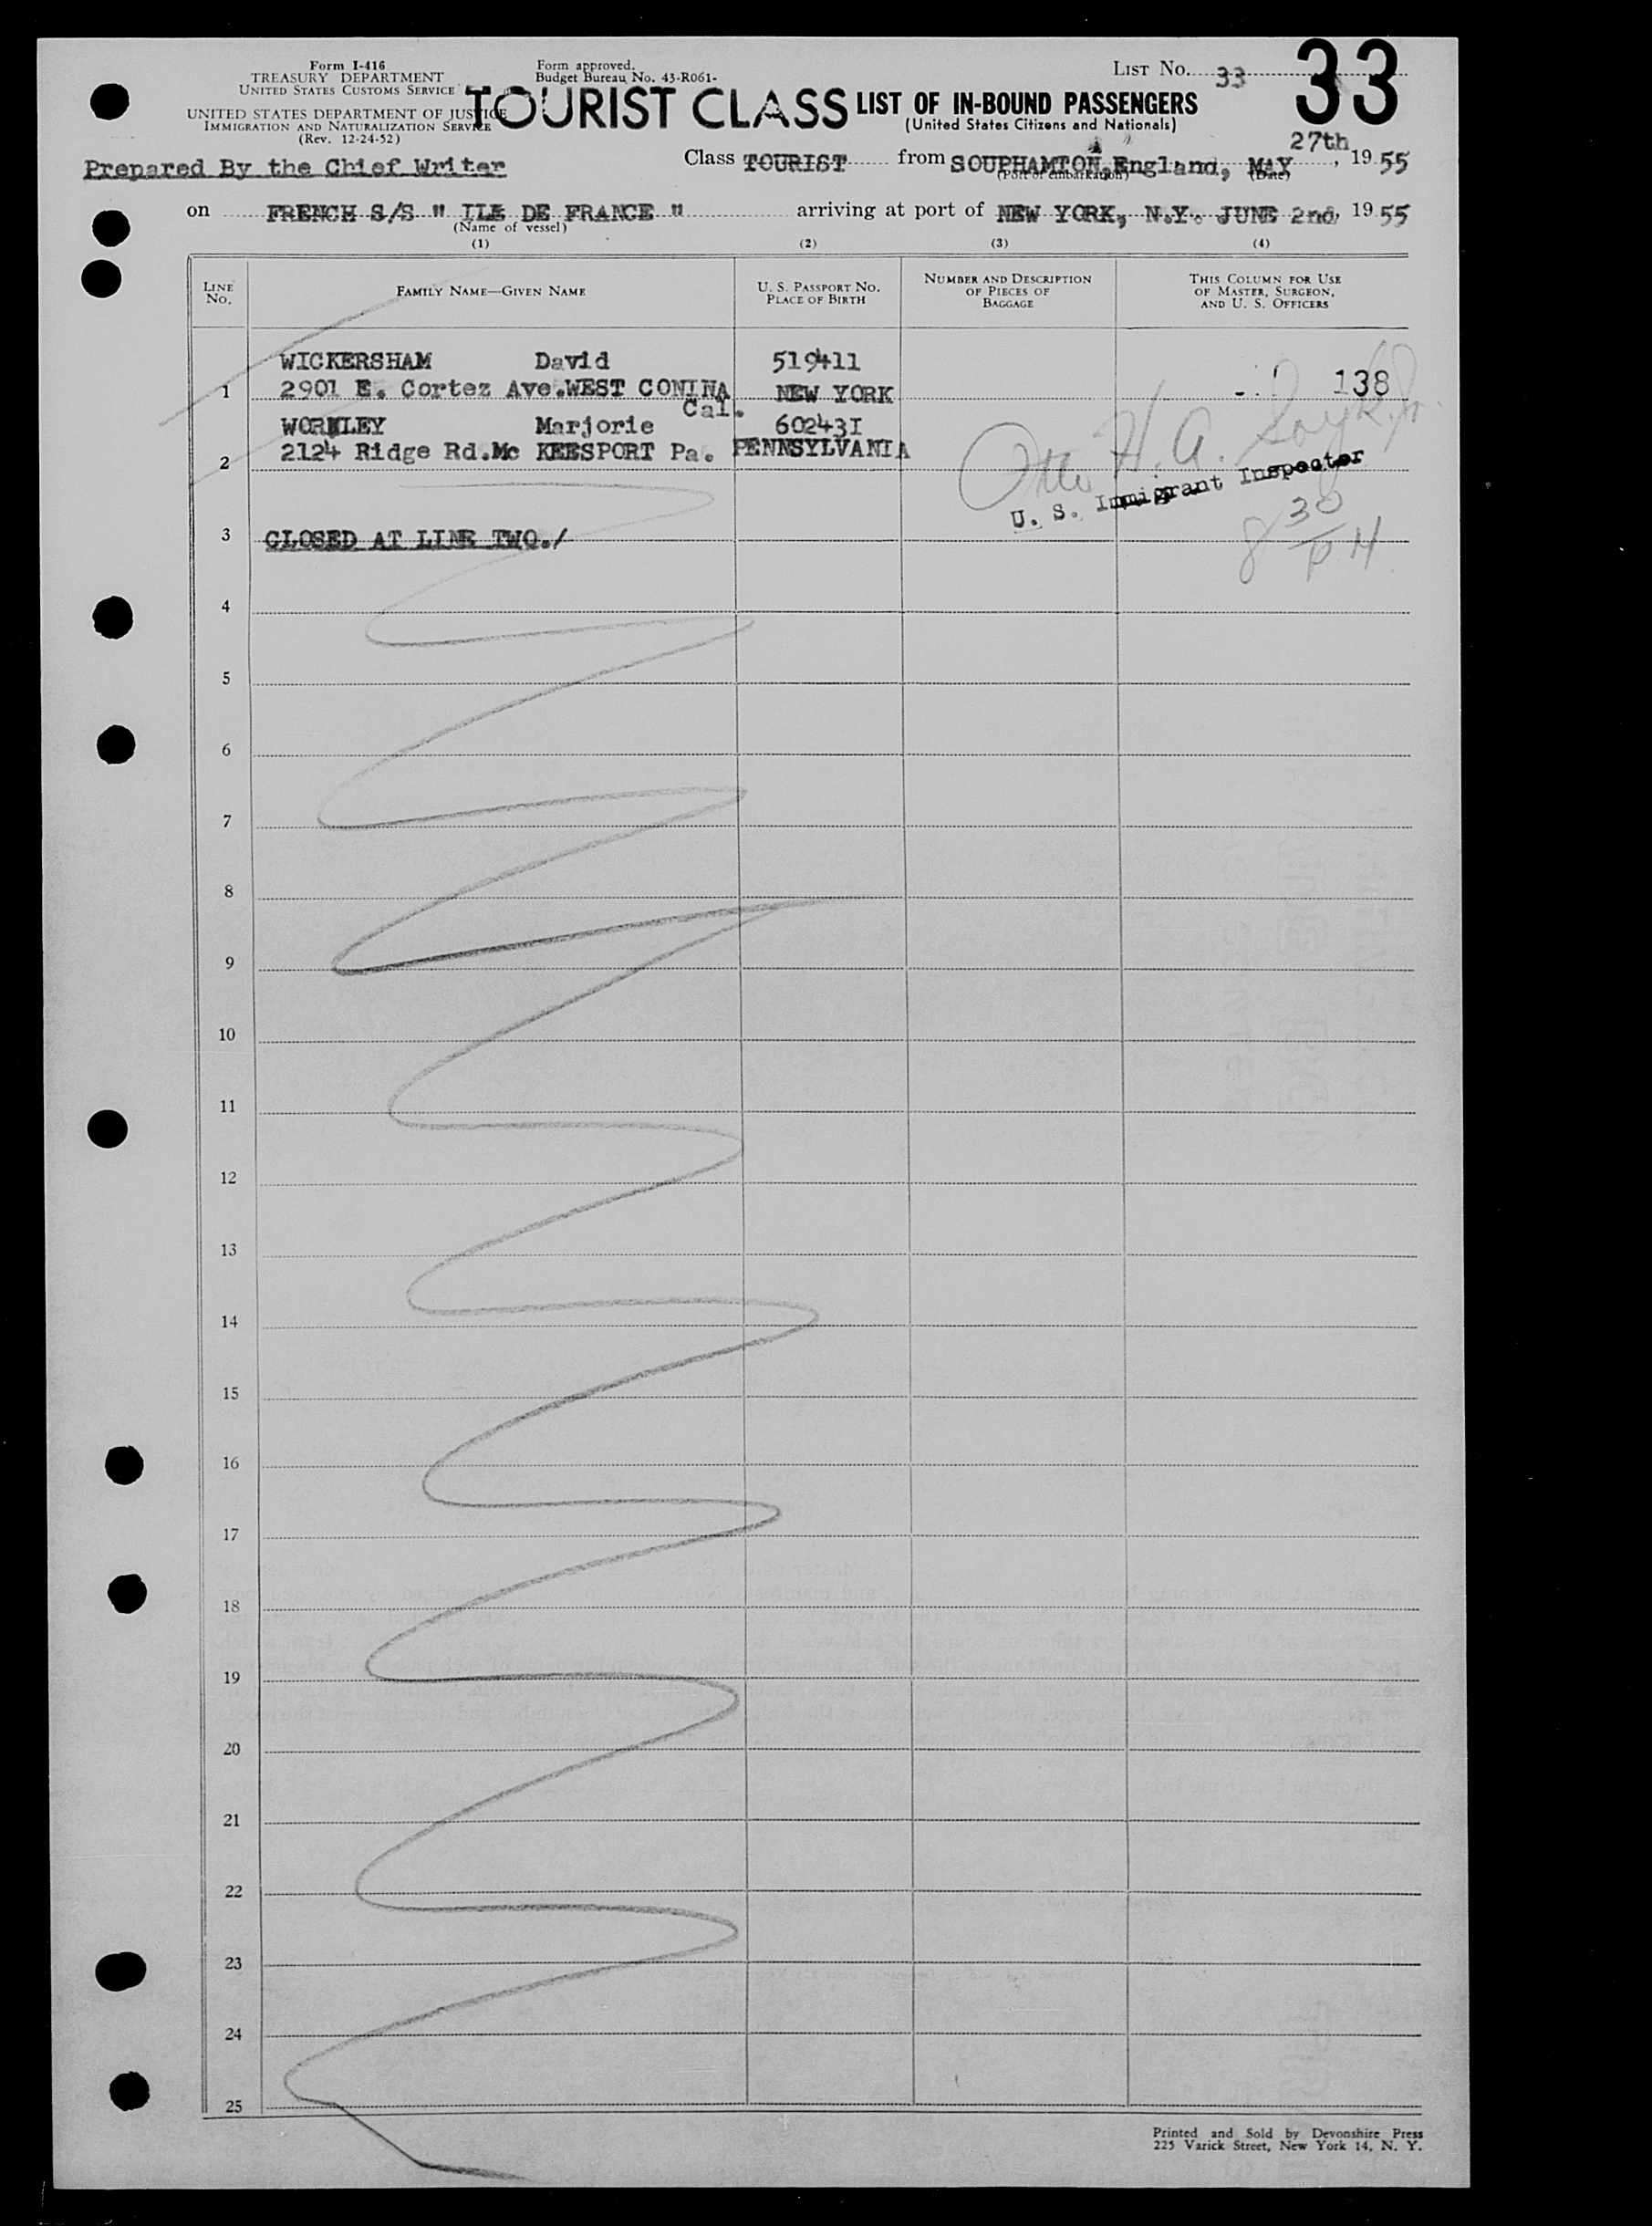 Form I-416
TREASURY DEPARTMENT
UNITED STATES CUSTOMS SERVICE
UNITED STATES DEPARTMENT OF JUSTICE
IMMIGRATION AND NATURALIZATION SERVICE
(Rev. 12-24-52)
Form approved.
Budget Bureau No. 43-R061-
TOURIST CLASS LIST OF IN-BOUND PASSENGERS
(United States Citizens and Nationals)
LIST No. 33
33
Prepared By the Chief Writer
Class TOURIST from SOUPHAMTON, England, MAY 27th, 1955
(Port of embarkation) (Date)
on FRENCH S/S " ILE DE FRANCE " arriving at port of NEW YORK, N.Y. JUNE 2nd, 1955
(Name of vessel)
(1) (2) (3) (4)
LINE No. FAMILY NAME—GIVEN NAME U. S. PASSPORT No. PLACE OF BIRTH NUMBER AND DESCRIPTION OF PIECES OF BAGGAGE THIS COLUMN FOR USE OF MASTER, SURGEON, AND U. S. OFFICERS
WICKERSHAM David 519411
1 2901 E. Cortez Ave.WEST CONINA Cal. NEW YORK 138
WORKLEY Marjorie 602431
2 2124 Ridge Rd.Mc KEESPORT Pa. PENNSYLVANIA
Otto H. A.
U. S. Immigrant Inspector
8 30 P.M
3 CLOSED AT LINE TWO./
4
5
6
7
8
9
10
11
12
13
14
15
16
17
18
19
20
21
22
23
24
25
Printed and Sold by Devonshire Press
225 Varick Street, New York 14, N. Y.